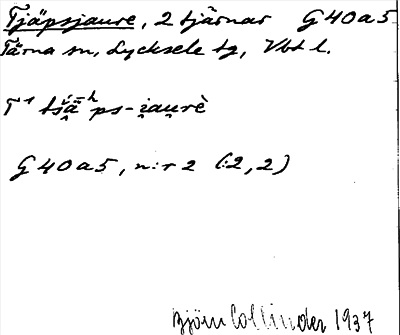 Tjäpsjaure, 2 tjärnar G40a5
Tärna sn, Lycksele tg, Vbt l.
G40a5, n:r 2 (:2,2)
Björn Collinder 1937